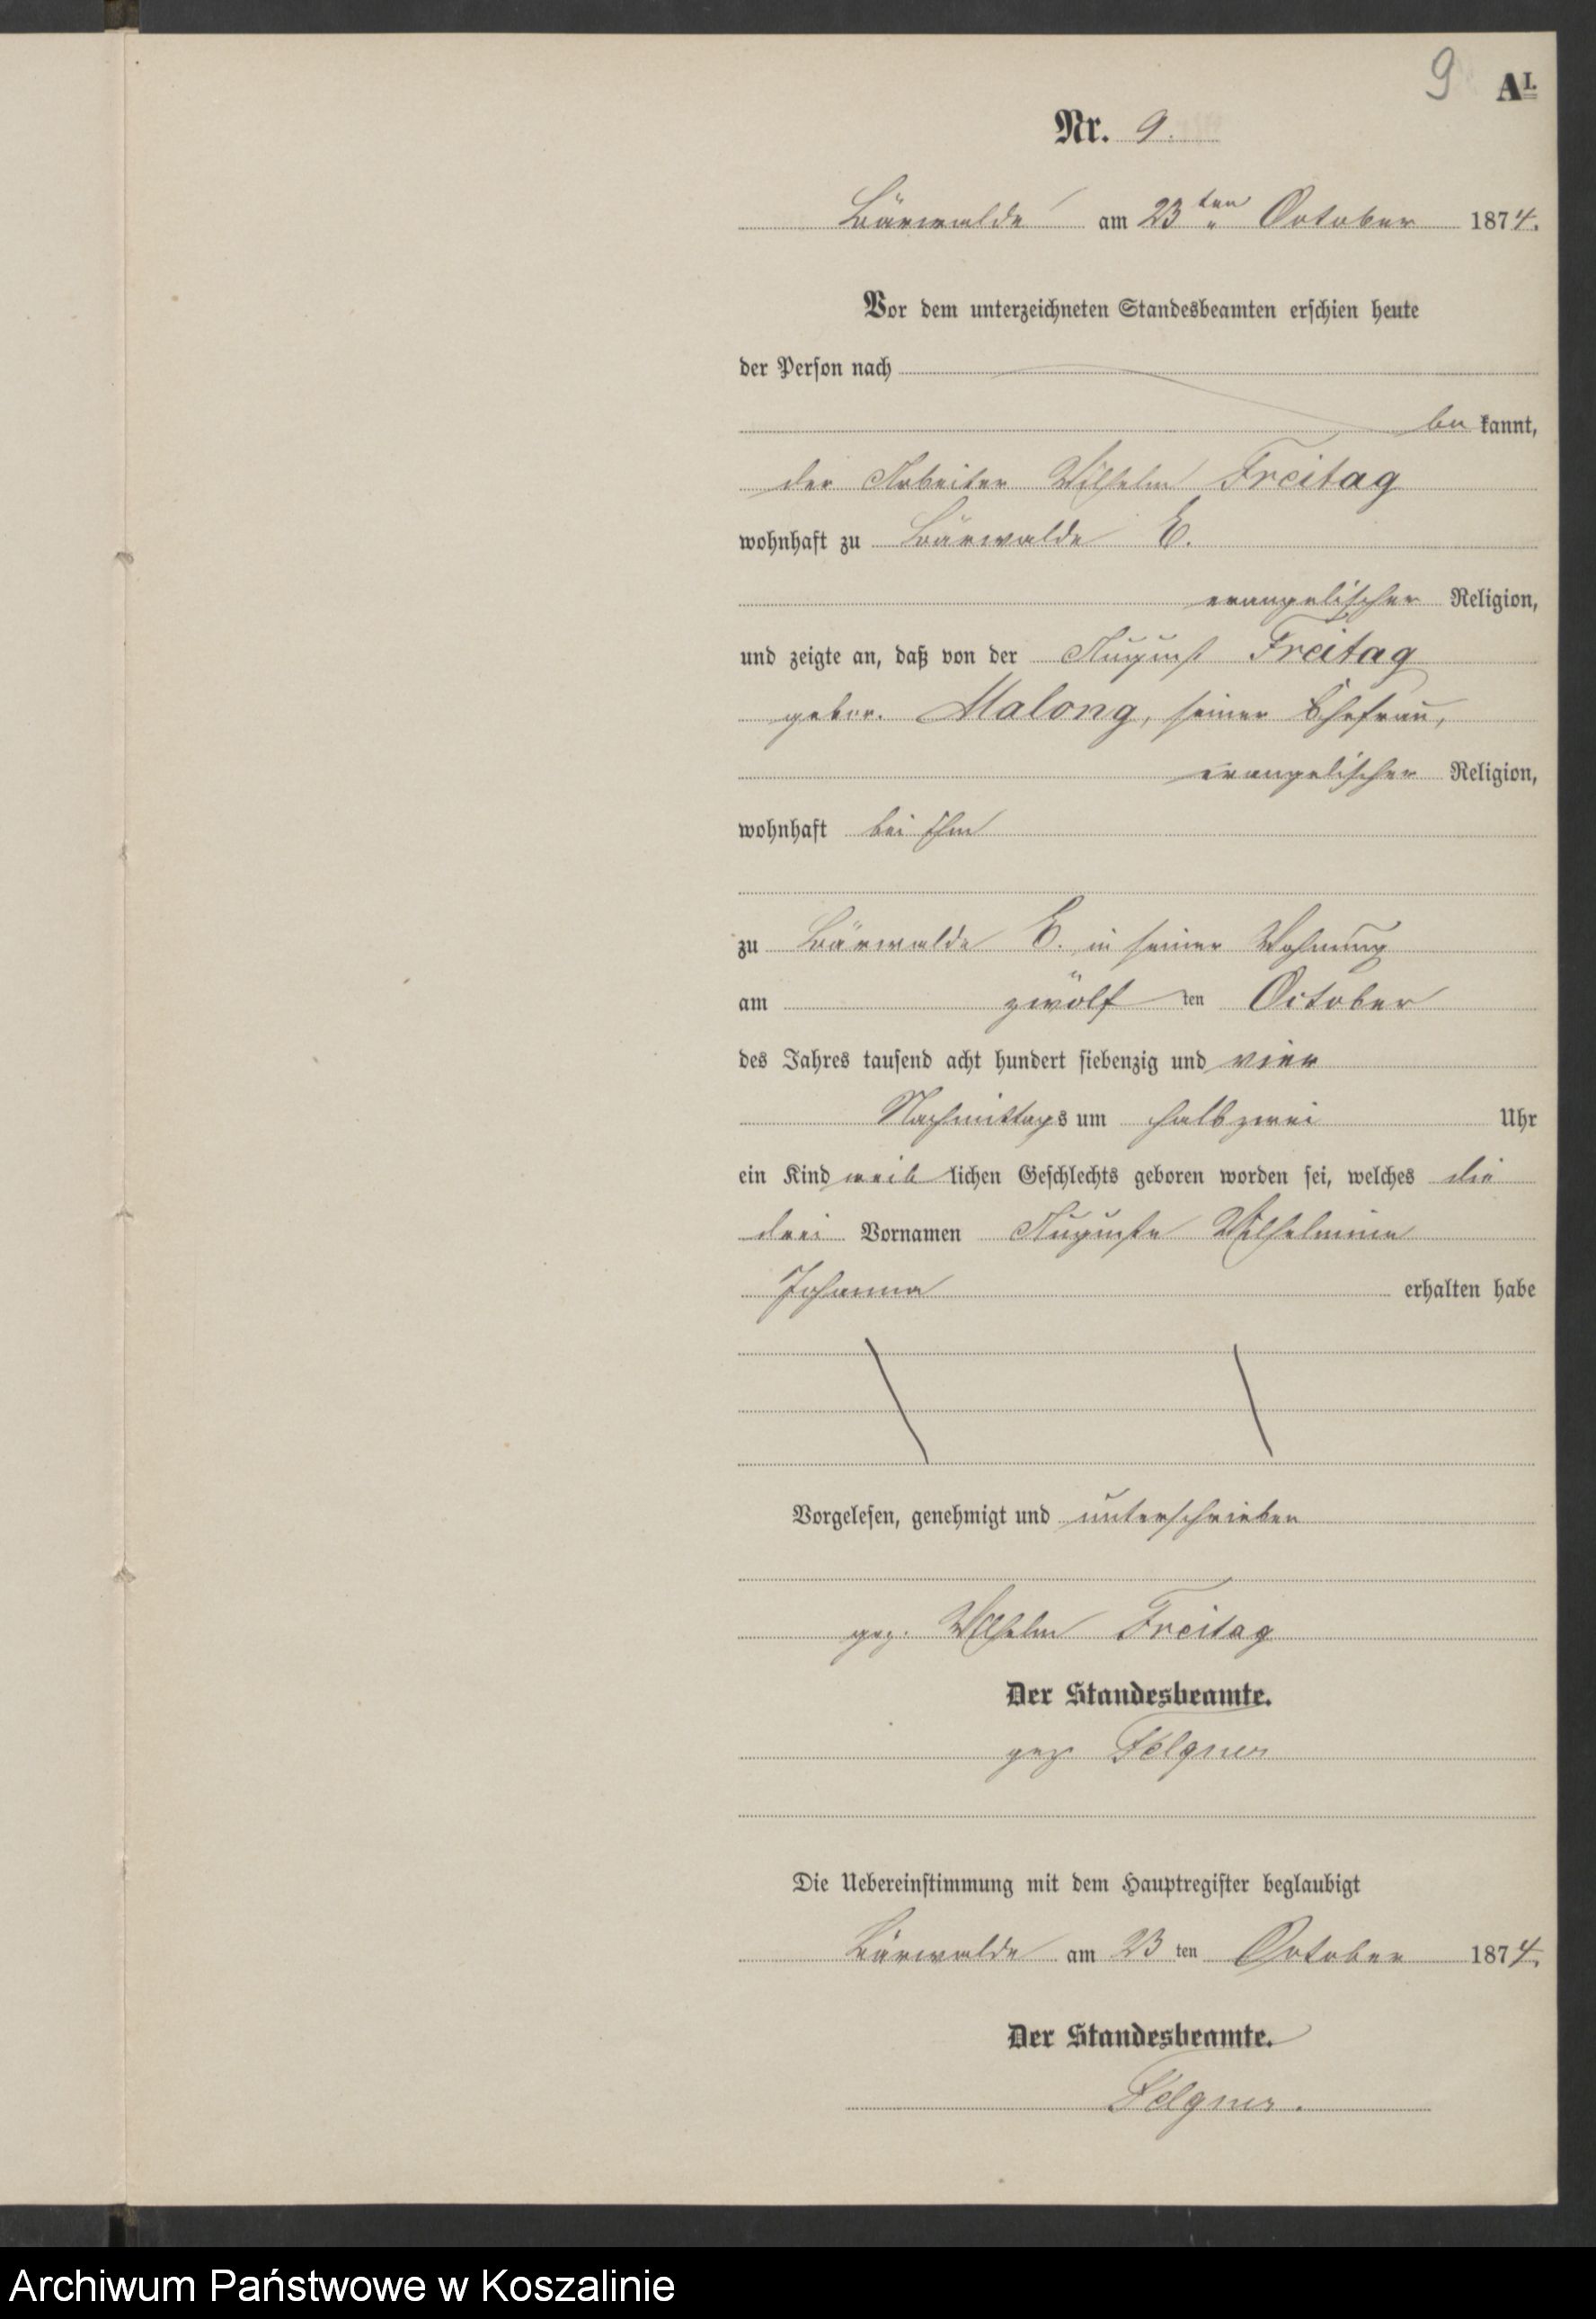 9 A I.
Nr. 9.
Bärwalde am 23ten October 1874.
Vor dem unterzeichneten Standesbeamten erschien heute
der Person nach
be kannt,
der Arbeiter Wilhelm Freitag
wohnhaft zu Bärwalde
evangelischer Religion,
und zeigte an, daß von der August Freitag
gebor. Malong, seiner Ehefrau,
evangelischer Religion,
wohnhaft bei ihm
zu Bärwalde in seiner Wohnung
am zwölf ten October
des Jahres tausend acht hundert siebenzig und vier
Nachmittags um halb zwei Uhr
ein Kind weib lichen Geschlechts geboren worden sei, welches die
drei Vornamen Auguste Wilhelmine
Johanna erhalten habe
Vorgelesen, genehmigt und unterschrieben
gez. Wilhelm Freitag
Der Standesbeamte.
gez Felgner
Die Uebereinstimmung mit dem Hauptregister beglaubigt
Bärwalde am 23 ten October 1874.
Der Standesbeamte.
Felgner.
Archiwum Państwowe w Koszalinie